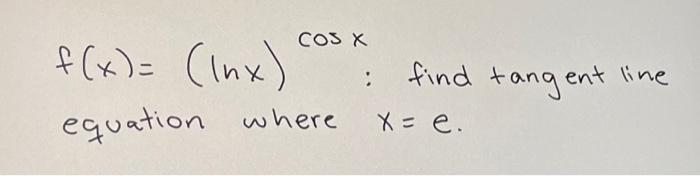 f(x) = (ln x)^cos x : find tangent line
equation where x = e.